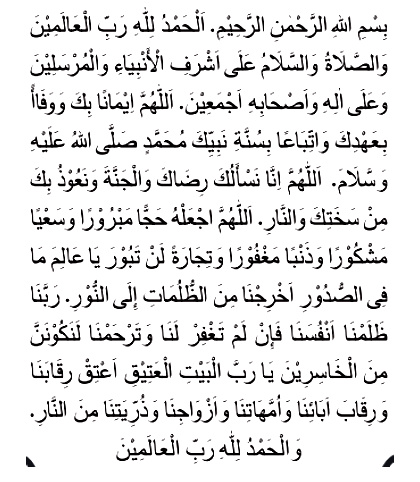 بِسْمِ اللهِ الرَّحْمٰنِ الرَّحِيْمِ. اَلْحَمْدُ لِلّٰهِ رَبِّ الْعَالَمِيْنَ
وَالصَّلَاةُ وَالسَّلَامُ عَلَى اَشْرَفِ الْأَنْبِيَاءِ وَالْمُرْسَلِيْنَ
وَعَلَى اٰلِهِ وَاَصْحَابِهِ اَجْمَعِيْنَ. اَللّٰهُمَّ اِيْمَانًا بِكَ وَوَفَاأً
بِعَهْدِكَ وَاتِّبَاعًا بِسُنَّةِ نَبِيِّكَ مُحَمَّدٍ صَلَّى اللهُ عَلَيْهِ
وَسَّلَامَ. اَللّٰهُمَّ اِنَّا نَسْأَلُكَ رِضَاكَ وَالْجَنَّةَ وَنَعُوْذُ بِكَ
مِنْ سَخَتِكَ وَالنَّارِ. اَللّٰهُمَّ اجْعَلْهُ حَجًّا مَبْرُوْرًا وَسَعْيًا
مَشْكُوْرًا وَذَنْبًا مَغْفُوْرًا وَتِجَارَةً لَنْ تَبُوْرَ يَا عَالِمَ مَا
فِى الصُّدُوْرِ اَخْرِجْنَا مِنَ الظُّلُمَاتِ إِلَى النُّوْرِ. رَبَّنَا
ظَلَمْنَا اَنْفُسَنَا فَإِنْ لَمْ تَغْفِرْ لَنَا وَتَرْحَمْنَا لَنَكُوْنَنَّ
مِنَ الْخَاسِرِيْنَ يَا رَبَّ الْبَيْتِ الْعَتِيْقِ اَعْتِقْ رِقَابَنَا
وَرِقَابَ اَبَائِنَا وَاُمَّهَاتِنَا وَاَزْوَاجِنَا وَذُرِّيَتِنَا مِنَ النَّارِ.
وَالْحَمْدُ لِلّٰهِ رَبِّ الْعَالَمِيْنَ